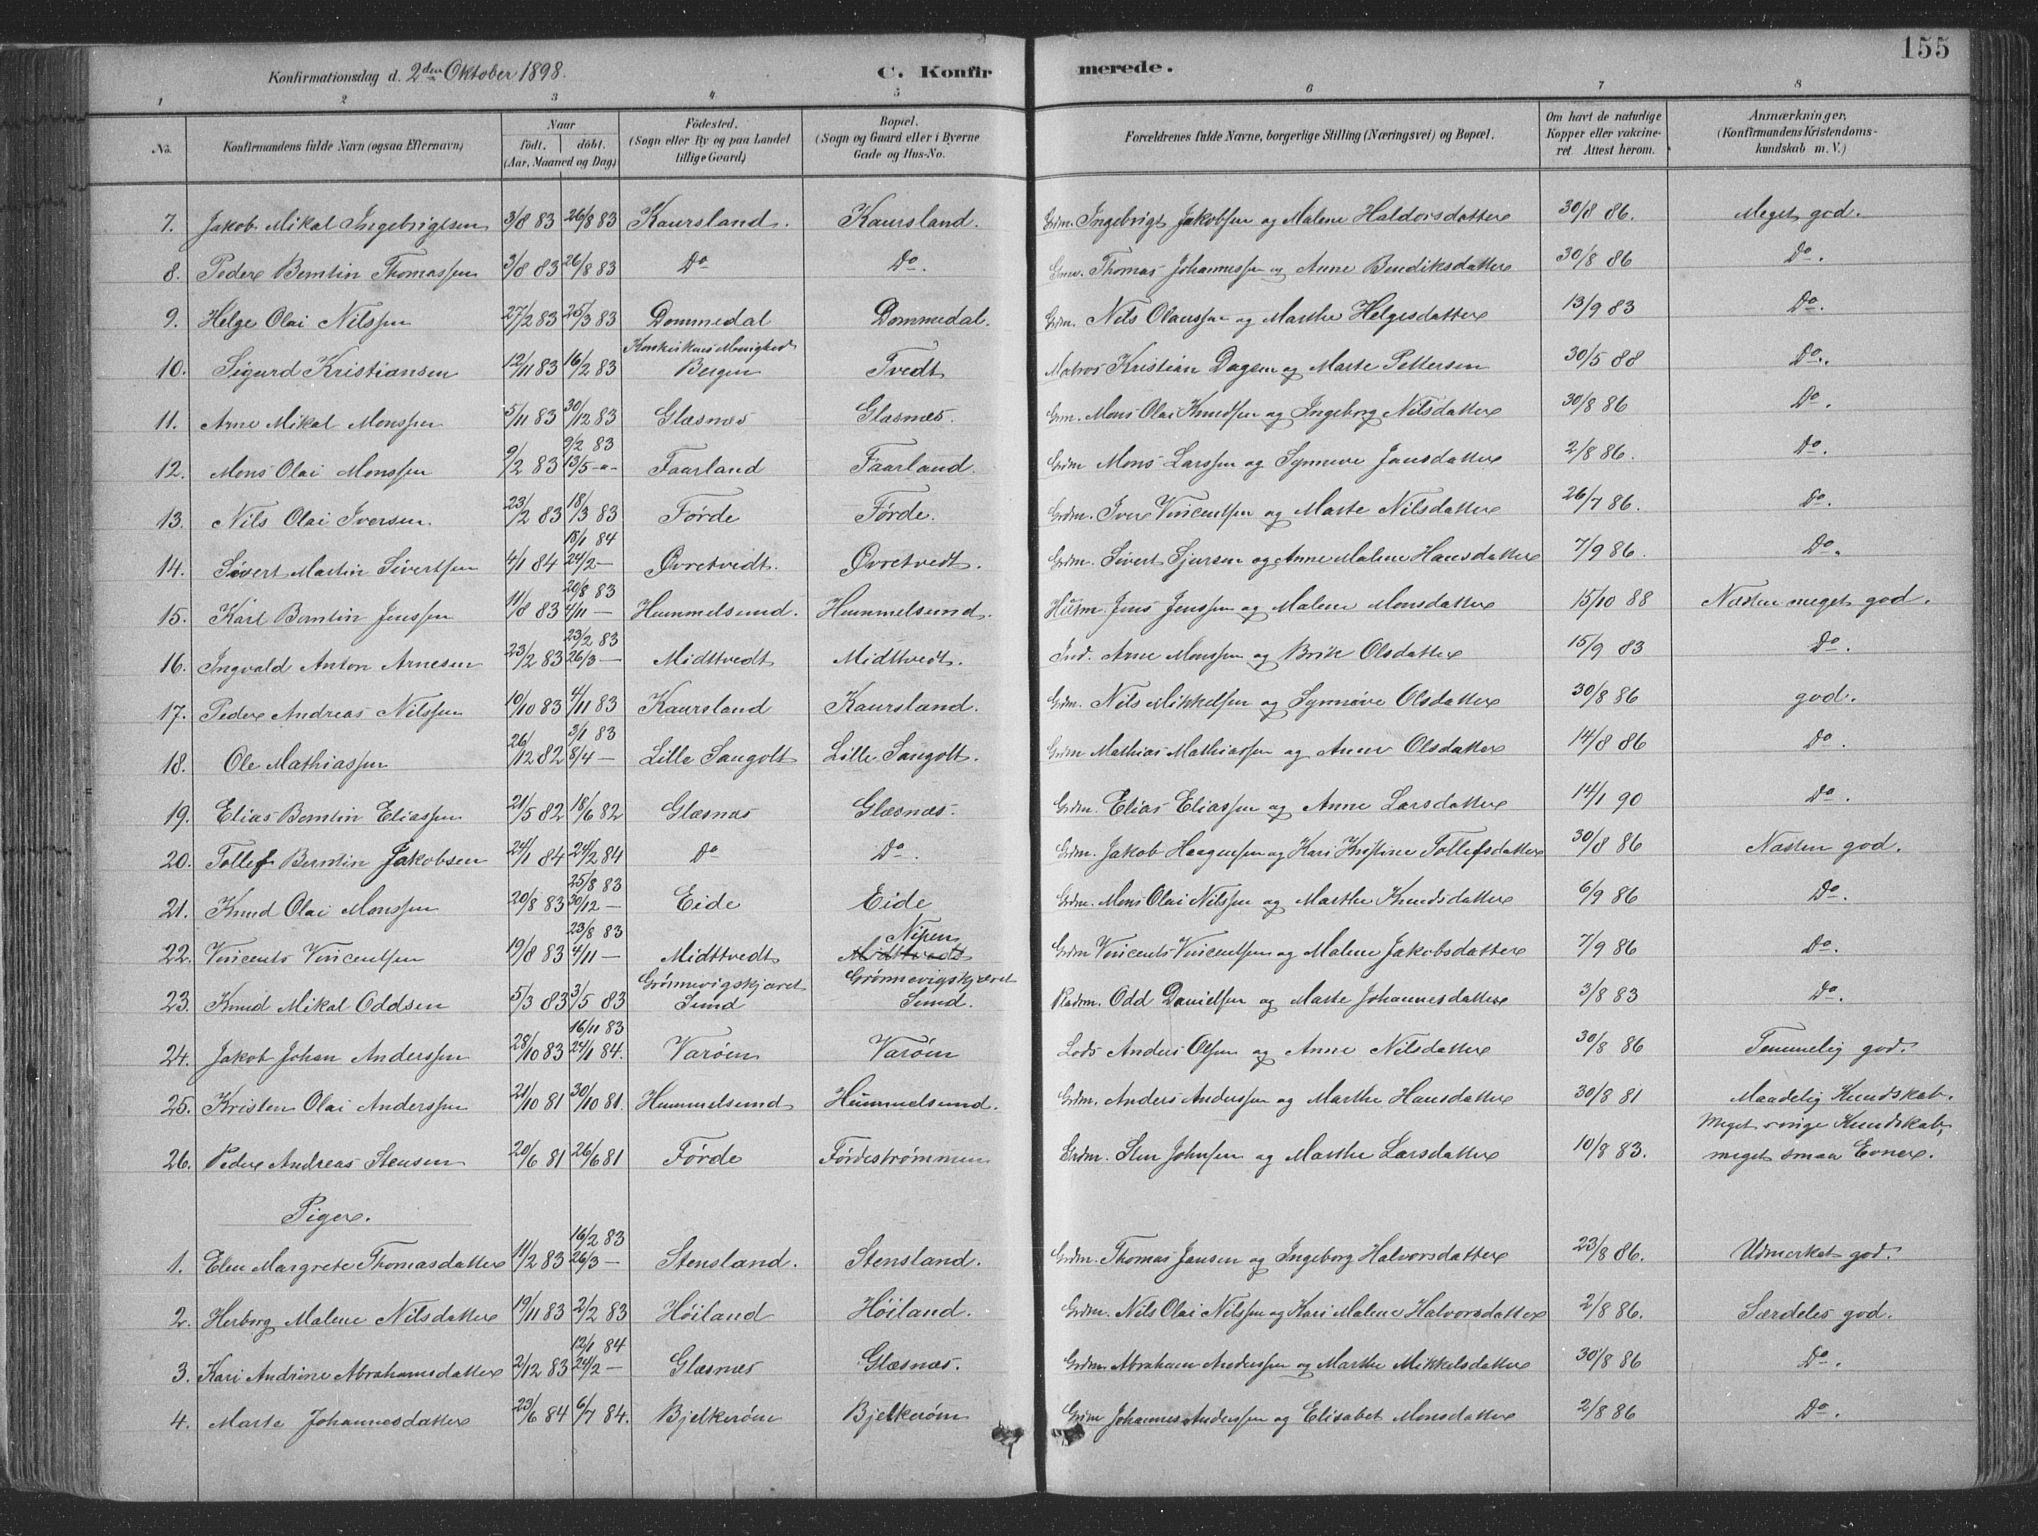 155
Konfirmationsdag d. 2den Oktober 1898. C. Konfirmerede.
1 2 3 4 5 6 7 8
No. Konfirmandens fulde Navn (ogsaa Efternavn) Naar født. døbt. (Aar, Maaned og Dag) Fødested. (Sogn eller By og paa Landet tillige Gaard) Bopæl. (Sogn og Gaard eller i Byerne Gade og Hus-No. Forældrenes fulde Navne, borgerlige Stilling (Næringsvei) og Bopæl. Om havt de naturlige Kopper eller vakcineret. Attest herom. Anmærkninger, (Konfirmandens Kristendomskundskab m. V.)
7. Jakob Mikal Ingebrigtsen 3/8 83 26/8 83 Kaursland. Kaursland. Grdm. Ingebrigt Jakobsen og Malene Haldorsdatter 30/8 86. Meget god.
8. Peder Berntin Thomassen 3/8 83 26/8 83 Do Do. Grm. Thomas Johannessen og Anne Bendiksdatter 30/8 86 Do.
9. Helge Olai Nilssen 27/2 83 25/3 83 Dommedal Dommedal. Grdm. Nils Olaussen og Marthe Helgesdatter 13/9 83 Do.
10. Sigurd Kristiansen 12/11 83 16/2 83 Korskirkens Menighed Bergen Tvedt Matros Kristian Dagsen og Marte Pettersen 30/5 88 Do.
11. Arne Mikal Monssen 5/11 83 30/12 83 Glæsnæs Glæsnæs. Grm. Mons Olai Knudsen og Ingeborg Nilsdatter 30/8 86 Do.
12. Mons Olai Monssen 9/2 83 9/2 83 13/5 -"- Faarland Faarland. Grdm Mons Larssen og Synneve Jansdatter 2/8 86. Do.
13. Nils Olai Iversen. 23/2 83 18/3 83 Førde Førde. Grdm. Iver Vincentsen og Marte Nilsdatter 26/7 86. Do.
14. Sivert Martin Sivertsen 4/1 84 18/1 84 24/2 — Øvretvedt. Øvretvedt. Grdm. Sivert Sjursen og Anne Malene Hansdatter 7/9 86. Do.
15. Karl Berntin Jenssen 11/8 83 20/8 83 4/11 — Hummelsund. Hummelsund. Husm. Jens Jenssen og Malene Monsdatter 15/10 88 Næsten meget god.
16. Ingvald Anton Arnesen 23/2 83 23/2 83 26/3 — Midttvedt Midttvedt. Ind. Arne Monssen og Brite Olsdatter 15/9 83 Do.
17. Peder Andreas Nilssen 10/10 83 4/11 83 Kaursland Kaursland. Grdm. Nils Mikkelsen og Synnøve Olsdatter 30/8 86 god.
18. Ole Mathiassen 26/12 82 3/1 83 8/4 — Lille Sangolt Lille Sangolt. Grdm Mathias Mathiassen og Anne Olsdatter 14/8 86 Do.
19. Elias Berntin Eliassen 21/5 82 18/6 82 Glæsnæs Glæsnæs. Grdm. Elias Eliassen og Anne Larsdatter 14/1 90 Do.
20. Tollef Berntin Jakobsen 24/1 84 24/2 84 Do Do. Grdm. Jakob Haagensen og Kari Kristine Tollefsdatter 30/8 86 Næsten god.
21. Knud Olai Monssen 20/8 83 25/8 83 30/12 — Eide Eide Grdm. Mons Olai Nilssen og Marthe Knudsdatter 6/9 86 Do.
22. Vincents Vincentsen 19/8 83 23/8 83 4/11 — Midttvedt Nipen Midttvedt Grdm Vincents Vincentsen og Malene Jakobsdatter 7/9 86 Do.
23. Knud Mikal Oddsen 5/3 83 3/5 83 Grønnevigskjæret Sund Grønnevigskjæret Sund. Odd Danielsen og Marte Johannesdatter 3/8 83 Do.
24. Jakob Johan Anderssen 28/10 83 16/11 83 24/1 84. Varøen Varøen Lods Anders Olsen og Anne Nilsdatter 30/8 86 Temmelig god.
25. Kristen Olai Anderssen 21/10 81 30/10 81. Hummelsund Hummelsund. Grdm. Anders Anderssen og Marthe Hansdatter 30/8 81 Maadelig Kundskab.
26. Peder Andreas Stensen 20/6 81 26/6 81 Førde Førdestrømmen Grdm. Sten Johnsen og Marthe Larsdatter 10/8 83. Meget ringe Kundskab, meget smaa Evner.
Piger.
1. Elen Margrete Thomasdatter 11/2 83 16/2 83 26/3 — Stensland. Stensland. Grdm. Thomas Jansen og Ingeborg Halvorsdatter 23/8 86. Udmerket god.
2. Herborg Malene Nilsdatter 19/11 83 2/2 83 Høiland Høiland. Grdm. Nils Olai Nilssen og Kari Malene Halvorsdatter 2/8 86. Særdeles god.
3. Kari Andrine Abrahamsdatter 2/12 83 12/1 84 24/2 — Glæsnæs Glæsnæs. Grdm. Abraham Anderssen og Marthe Mikkelsdatter 30/8 86 Do.
4. Marte Johannesdatter 23/6 84 6/7 84. Bjelkerøen Bjelkerøen Grdm Johannes Anderssen og Elisabet Monsdatter 2/8 86 Do.